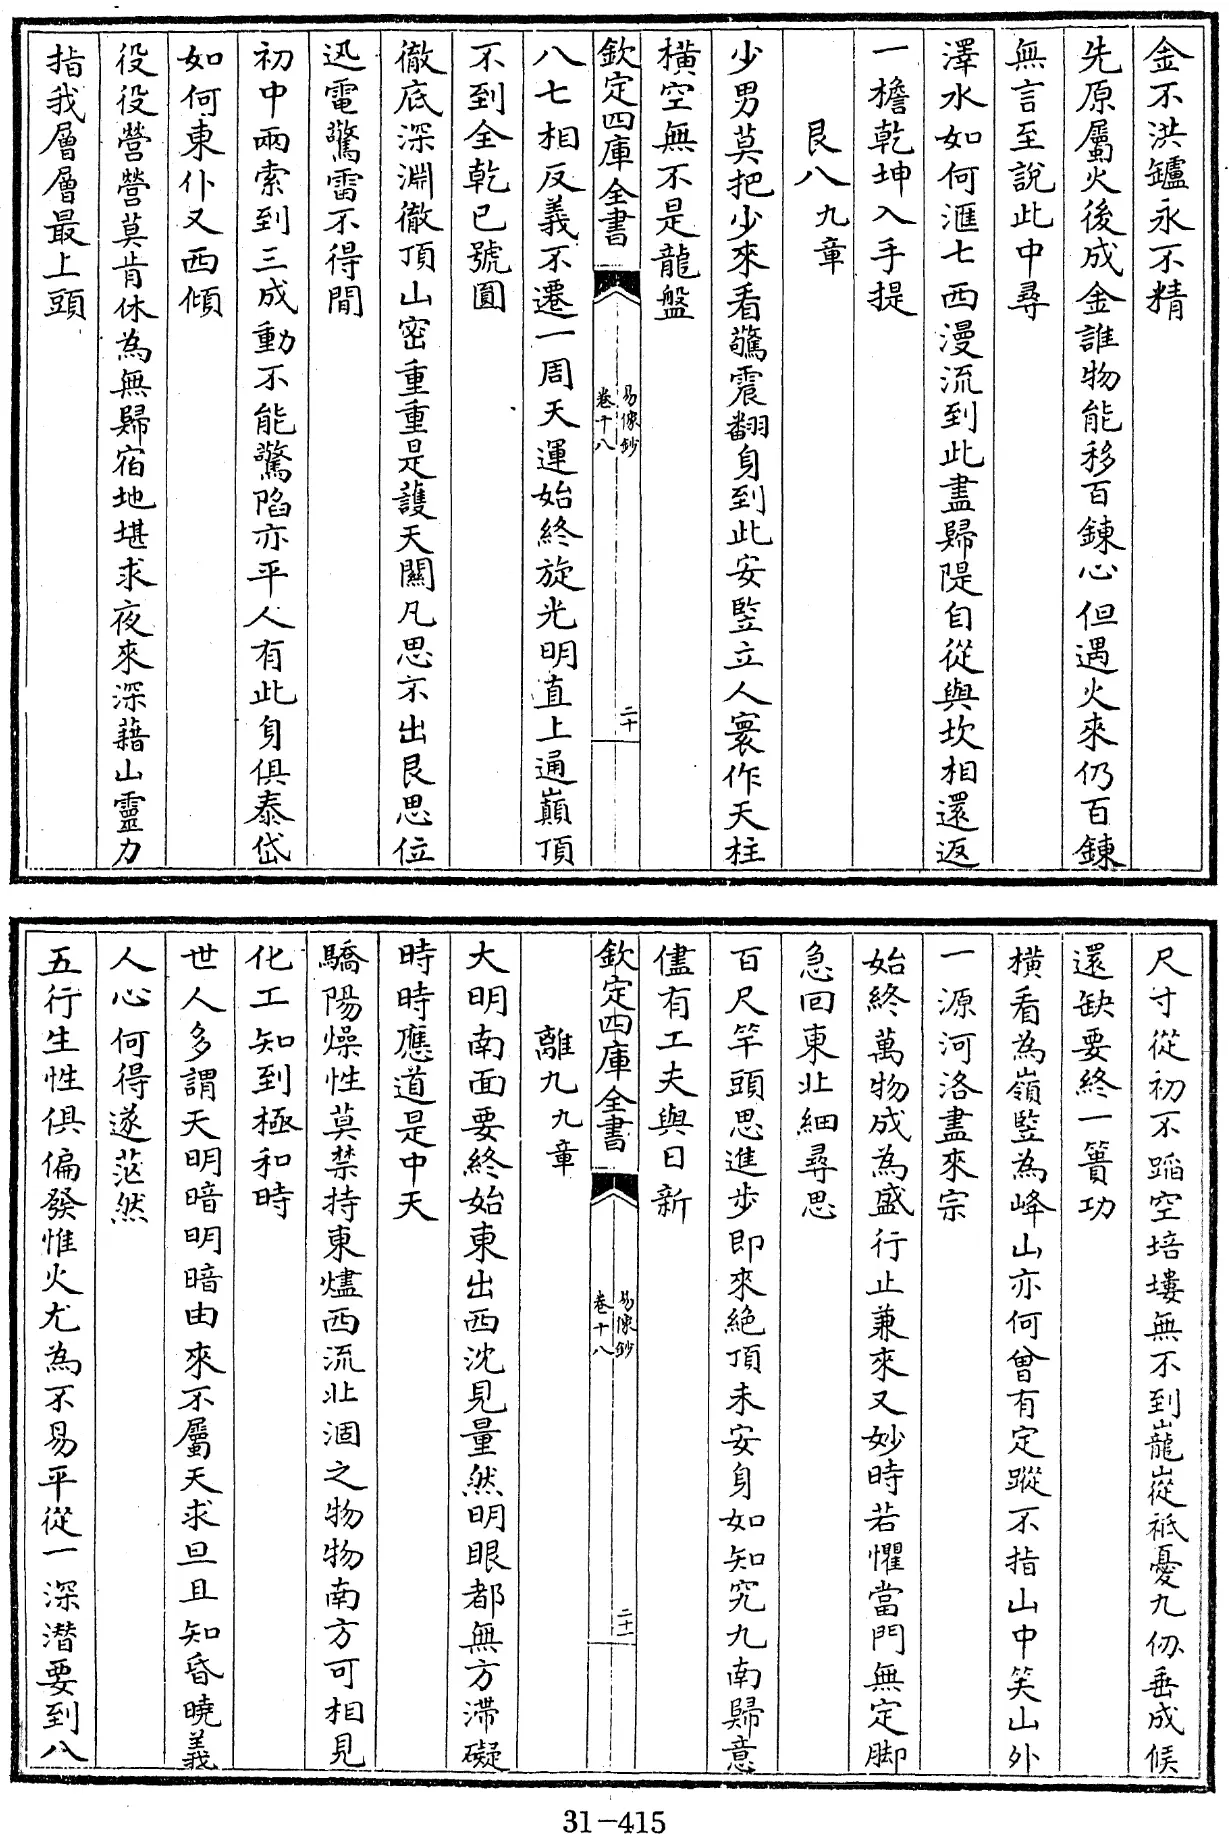 金不洪鑪永不精
先原屬火後成金誰物能移百鍊心但遇火來仍百鍊
無言至說此中尋
澤水如何滙七西漫流到此盡歸隄自從與坎相還返
一檐乾坤入手提
艮八九章
少男莫把少來看驚震翻身到此安豎立人寰作天柱
橫空無不是龍盤
欽定四庫全書
易像鈔
卷十八
二十
八七相反義不遷一周天運始終旋光明直上通巔頂
不到全乾已號圓
徹底深淵徹頂山密重重是護天關凡思不出艮思位
迅電驚雷不得閒
初中兩索到三成動不能驚陷亦平人有此身俱泰岱
如何東仆又西傾
役役營營莫肯休為無歸宿地堪求夜來深藉山靈力
指我層層最上頭
尺寸從初不蹈空培塿無不到巃嵸祗憂九仞垂成候
還缺要終一簣功
橫看為嶺豎為峰山亦何曾有定蹤不指山中笑山外
一源河洛盡來宗
始終萬物成為盛行止兼來又妙時若懼當門無定脚
急回東北細尋思
百尺竿頭思進步即來絕頂未安身如知究九南歸意
儘有工夫與日新
欽定四庫全書
易像鈔
卷十八
二十一
離九九章
大明南面要終始東出西沈見量然明眼都無方滯礙
時時應道是中天
驕陽燥性莫禁持東燼西流北涸之物物南方可相見
化工知到極和時
世人多謂天明暗明暗由來不屬天求旦且知昏曉義
人心何得遂茫然
五行生性俱偏發惟火尤為不易平從一深潛要到八
31-415